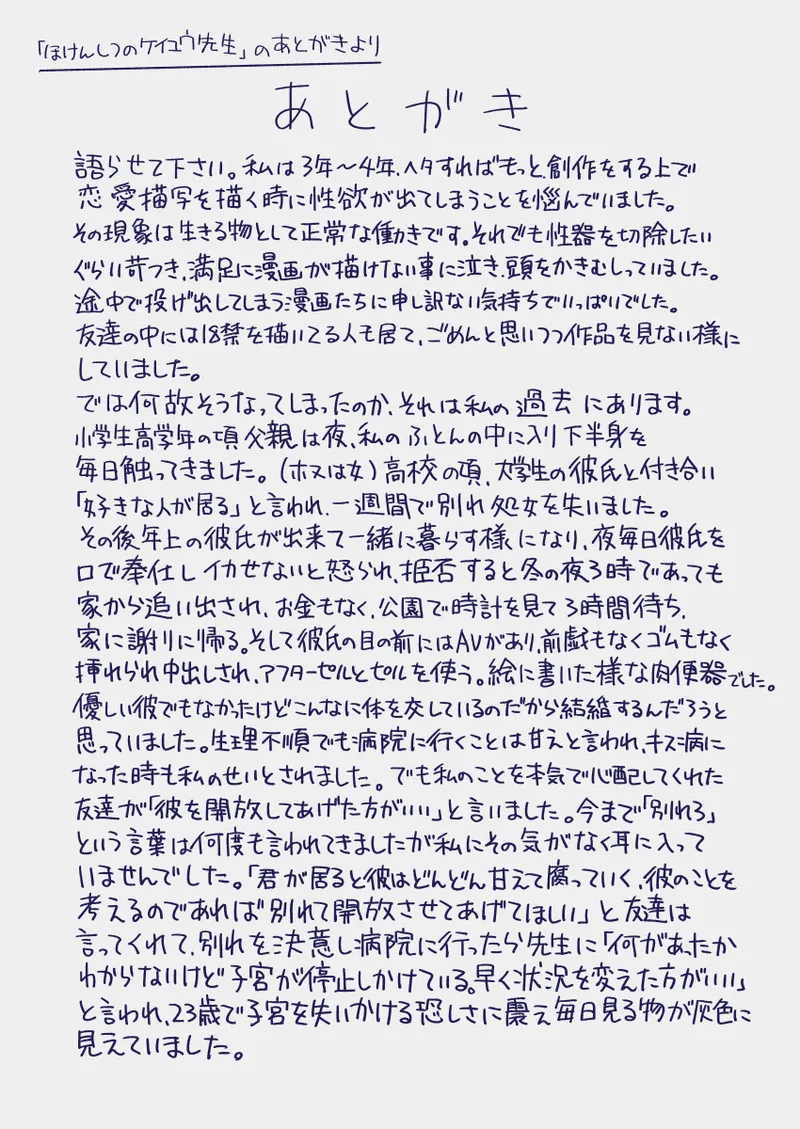 「ほけんしつのケイユウ先生」のあとがきより
あとがき
語らせて下さい。私は3年〜4年、ヘタすればもっと、創作をする上で
恋愛描写を描く時に性欲が出てしまうことを悩んでいました。
その現象は生きる物として正常な働きです。それでも性器を切除したい
ぐらい苛つき、満足に漫画が描けない事に泣き、頭をかきむしっていました。
途中で投げ出してしまう漫画たちに申し訳ない気持ちでいっぱいでした。
友達の中には18禁を描いてる人も居て、ごめんと思いつつ作品を見ない様に
していました。
では何故そうなってしまったのか、それは私の過去にあります。
小学生高学年の頃父親は夜、私のふとんの中に入り下半身を
毎日触ってきました。(ホヌは女)高校の頃、大学生の彼氏と付き合い
「好きな人が居る」と言われ、一週間で別れ処女を失いました。
その後年上の彼氏が出来て一緒に暮らす様になり、夜毎日彼氏を
口で奉仕しイカせないと怒られ、拒否すると冬の夜3時であっても
家から追い出され、お金もなく、公園で時計を見て3時間待ち、
家に謝りに帰る。そして彼氏の目の前にはAVがあり、前戯もなくゴムもなく
挿れられ中出しされ、アフターピルとピルを使う。絵に書いた様な肉便器でした。
優しい彼でもなかったけどこんなに体を交しているのだから結婚するんだろうと
思っていました。生理不順でも病院に行くことは甘えと言われ、キス病に
なった時も私のせいとされました。でも私のことを本気で心配してくれた
友達が「彼を開放してあげた方がいい」と言いました。今まで「別れろ」
という言葉は何度も言われてきましたが私にその気がなく耳に入って
いませんでした。「君が居ると彼はどんどん甘えて腐っていく、彼のことを
考えるのであれば別れて開放させてあげてほしい」と友達は
言ってくれて、別れを決意し病院に行ったら先生に「何があったか
わからないけど子宮が停止しかけている。早く状況を変えた方がいい」
と言われ、23歳で子宮を失いかける恐しさに震え毎日見る物が灰色に
見えていました。